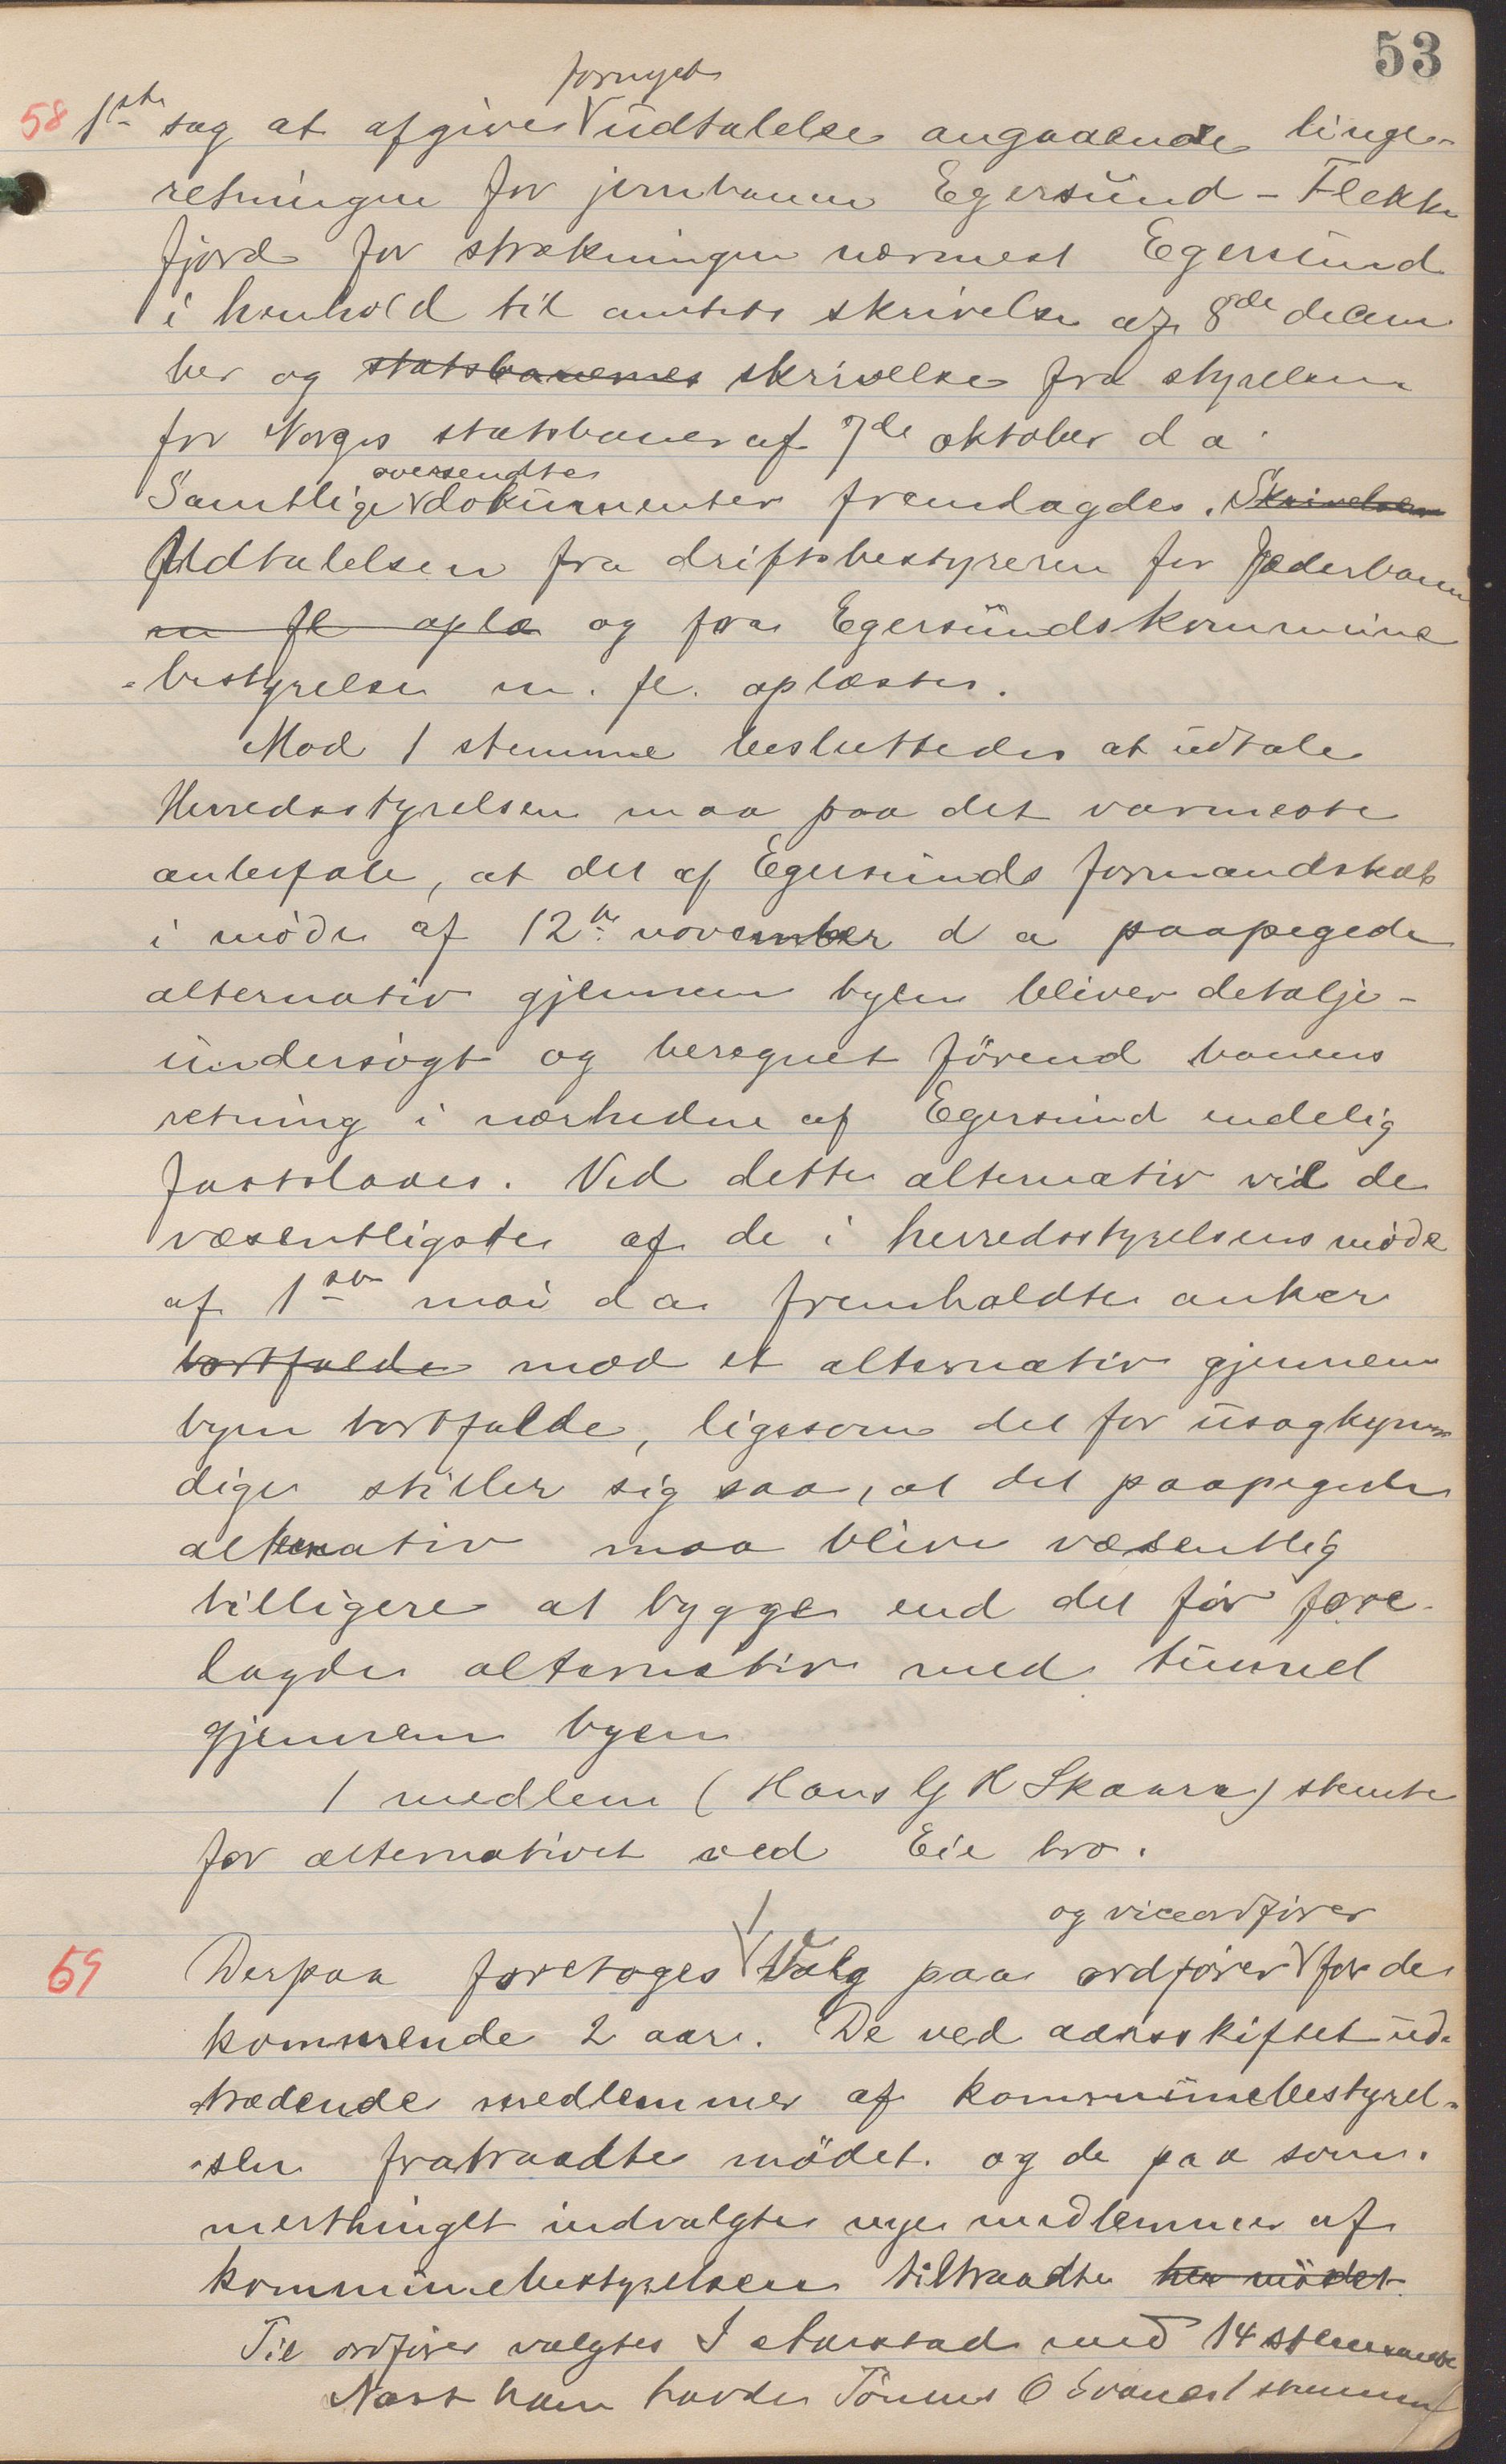 53
fornyet
58 1ste sag at afgive udtalelse angaaende linje-
retningen for jernbanen Egersund - Flekke
fjord for strækningen nærmest Egersund
i henhold til amtets skrivelse af 8de decem
ber og statsbanernes skrivelse fra styrelsen
for Norges statsbaner af 7de oktober d a.
oversendte
Samtlige dokumenter fremlagdes. Skrivelsen
Udtalelsen fra driftsbestyreren for Jæderbanen
m fl oplæ og fra Egersunds kommune
-bestyrelse m. fl. oplæstes.
Mod 1 stemme besluttedes at udtale
Herredsstyrelsen maa paa det varmeste
anbefale, at det af Egersunds formandskab
i møde af 12te november d a paapegede
alternativ gjennem byen bliver detalje-
undersøgt og beregnet førend banens
retning i nærheden af Egersund endelig
fastslaaes. Ved dette alternativ vil de
væsentligste af de i herredsstyrelsens møde
af 1ste mai d a fremholdte anker
bortfalde mod et alternativ gjennem
byen bortfalde, ligesom det for usagkyn-
dige stiller sig saa, at det paapegede
alternativ maa blive væsentlig
billigere at bygge end det før fore-
lagde alternativ med tunnel
gjennem byen
1 medlem (Hans G H Skaara) stemte
for alternativet ved Eie bro.
og viceordfører
59 Derpaa foretoges Valg paa ordfører for de
kommende 2 aar. De ved aarsskiftet ud-
trædende medlemmer af kommunebestyrel-
-sen fratraadte mødet. og de paa som-
merthinget indvalgte nye medlemmer af
kommunebestyrelsen tiltraadte her mødet.
Til ordfører valgtes I med 14 stemmer
Næst ham havde Tønnes O Svanes 1 stemme